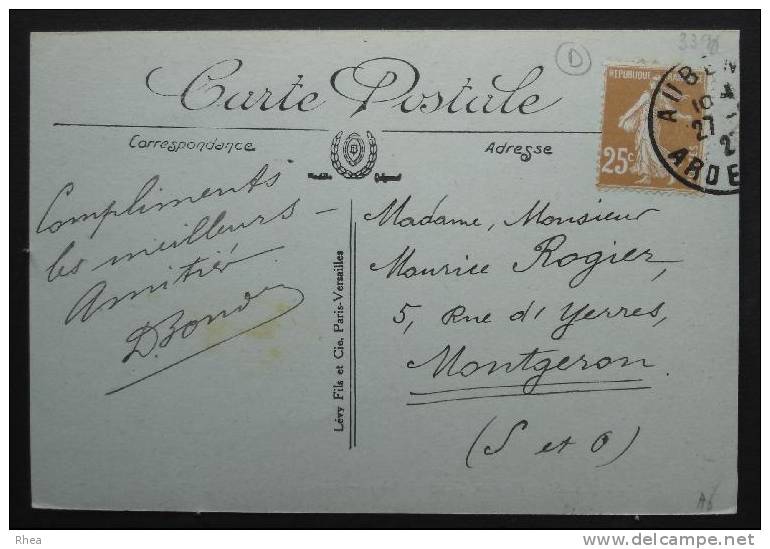 3390
D
Carte Postale
Correspondance
Adresse
REPUBLIQUE FRANÇAISE
25c
AUBEN
10
27
2
ARDE
Compliments
les meilleurs –
Amitiés
Madame, Monsieur
Maurice Rogier,
5, Rue d'Yerres,
Montgeron.
(S et O)
Lévy Fils et Cie, Paris-Versailles
A6
Rhea
delcampe.net